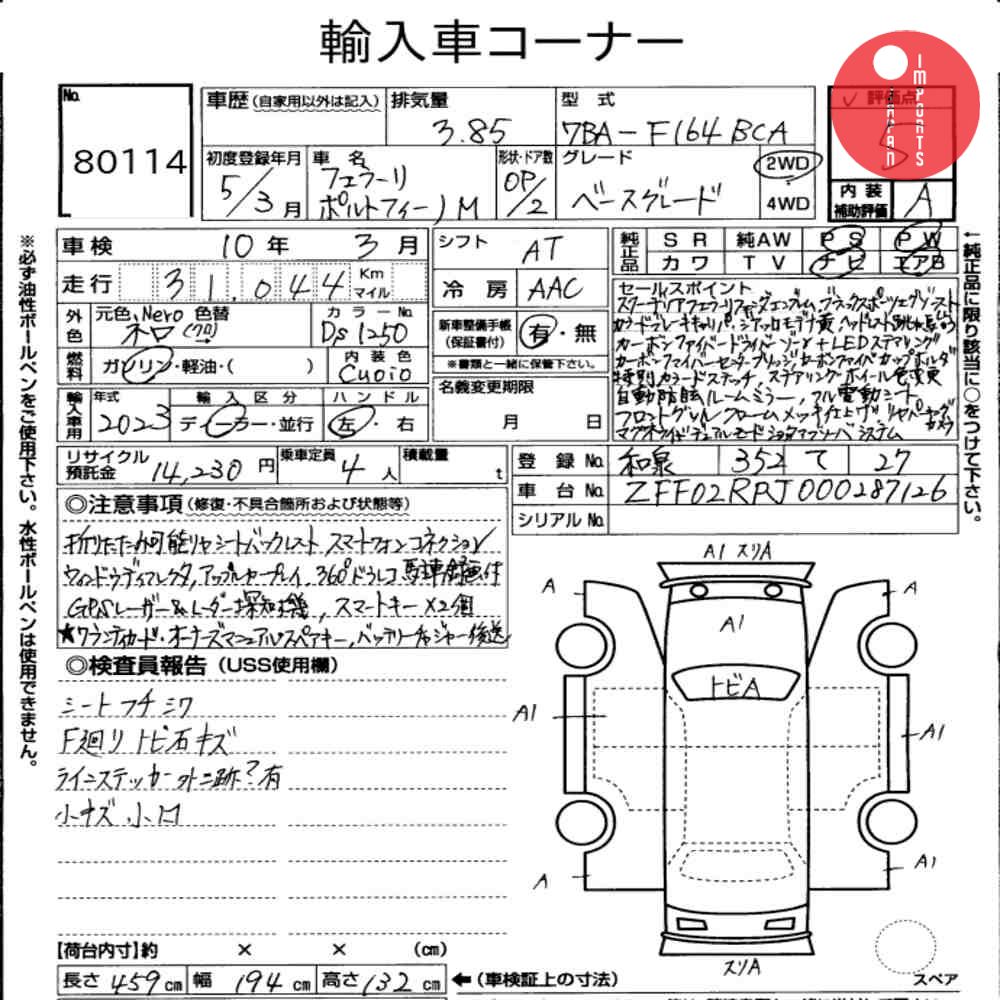 輸入車コーナー
JAPAN IMPORTS
No. 80114
車歴 (自家用以外は記入)
排気量 3.85
型式 7BA-F164BCA
✓ 評価点 5
初度登録年月 5/3月
車名 フェラーリ ポルトフィーノM
形状・ドア数 OP/2
グレード ベースグレード
2WD
4WD
内装補助評価 A
車検 10年 3月
走行 31,044 Km マイル
外色 元色 Nero 色替 ネロ(クロ)
カラーNo. Ds 1250
燃料 ガソリン・軽油・( )
内装色 Cuoio
輸入車用 年式 2023
輸入区分 ディーラー・並行
ハンドル 左・右
シフト AT
冷房 AAC
新車整備手帳(保証書付) 有・無
※書類と一緒に保管下さい。
名義変更期限
月 日
純正品 SR 純AW PS PW
カワ TV ナビ エアB
セールスポイント
スクーデリアフェラーリフェンダーエンブレム、ブラックスポーツエグゾースト
カラードブレーキキャリパー
カーボンファイバードライバーゾーン+LEDステアリング
カーボンファイバーセンターブリッジ カーボンファイバーカップホルダー
特別カラードステッチ ステアリングホイール色変更
自動防眩ルームミラー、フル電動シート
フロントグリルクロームメッキ仕上げ リヤパーキングカメラ
マグネライドデュアルモードショックアブソーバシステム
リサイクル預託金 14,230円
乗車定員 4人
積載量 t
登録No. 和泉 352 て 27
車台No. ZFF02RPJ000287126
シリアルNo.
◎注意事項(修復・不具合箇所および状態等)
折りたたみ可能リヤシートバックレスト スマートフォンコネクション
ウィンドウディフレクタ、アップルカープレイ 360°ドラレコ 駐車録画付
GPSレーザー&レーダー探知機, スマートキー×2個
★ワランティカード・オーナーズマニュアル スペアキー, バッテリーチャージャー後送
◎検査員報告(USS使用欄)
シートフチシワ
F廻りトビ石キズ
ライニステッカー外ニ跡?有
小キズ 小凹
A1 スリA
A
A
A1
トビA
A1
A1
A
A1
スリA
スペア
【荷台内寸】約 × × (cm)
長さ 459cm 幅 194cm 高さ 132cm ←(車検証上の寸法)
※必ず油性ボールペンをご使用下さい。水性ボールペンは使用できません。
←純正品に限り該当に○をつけて下さい。